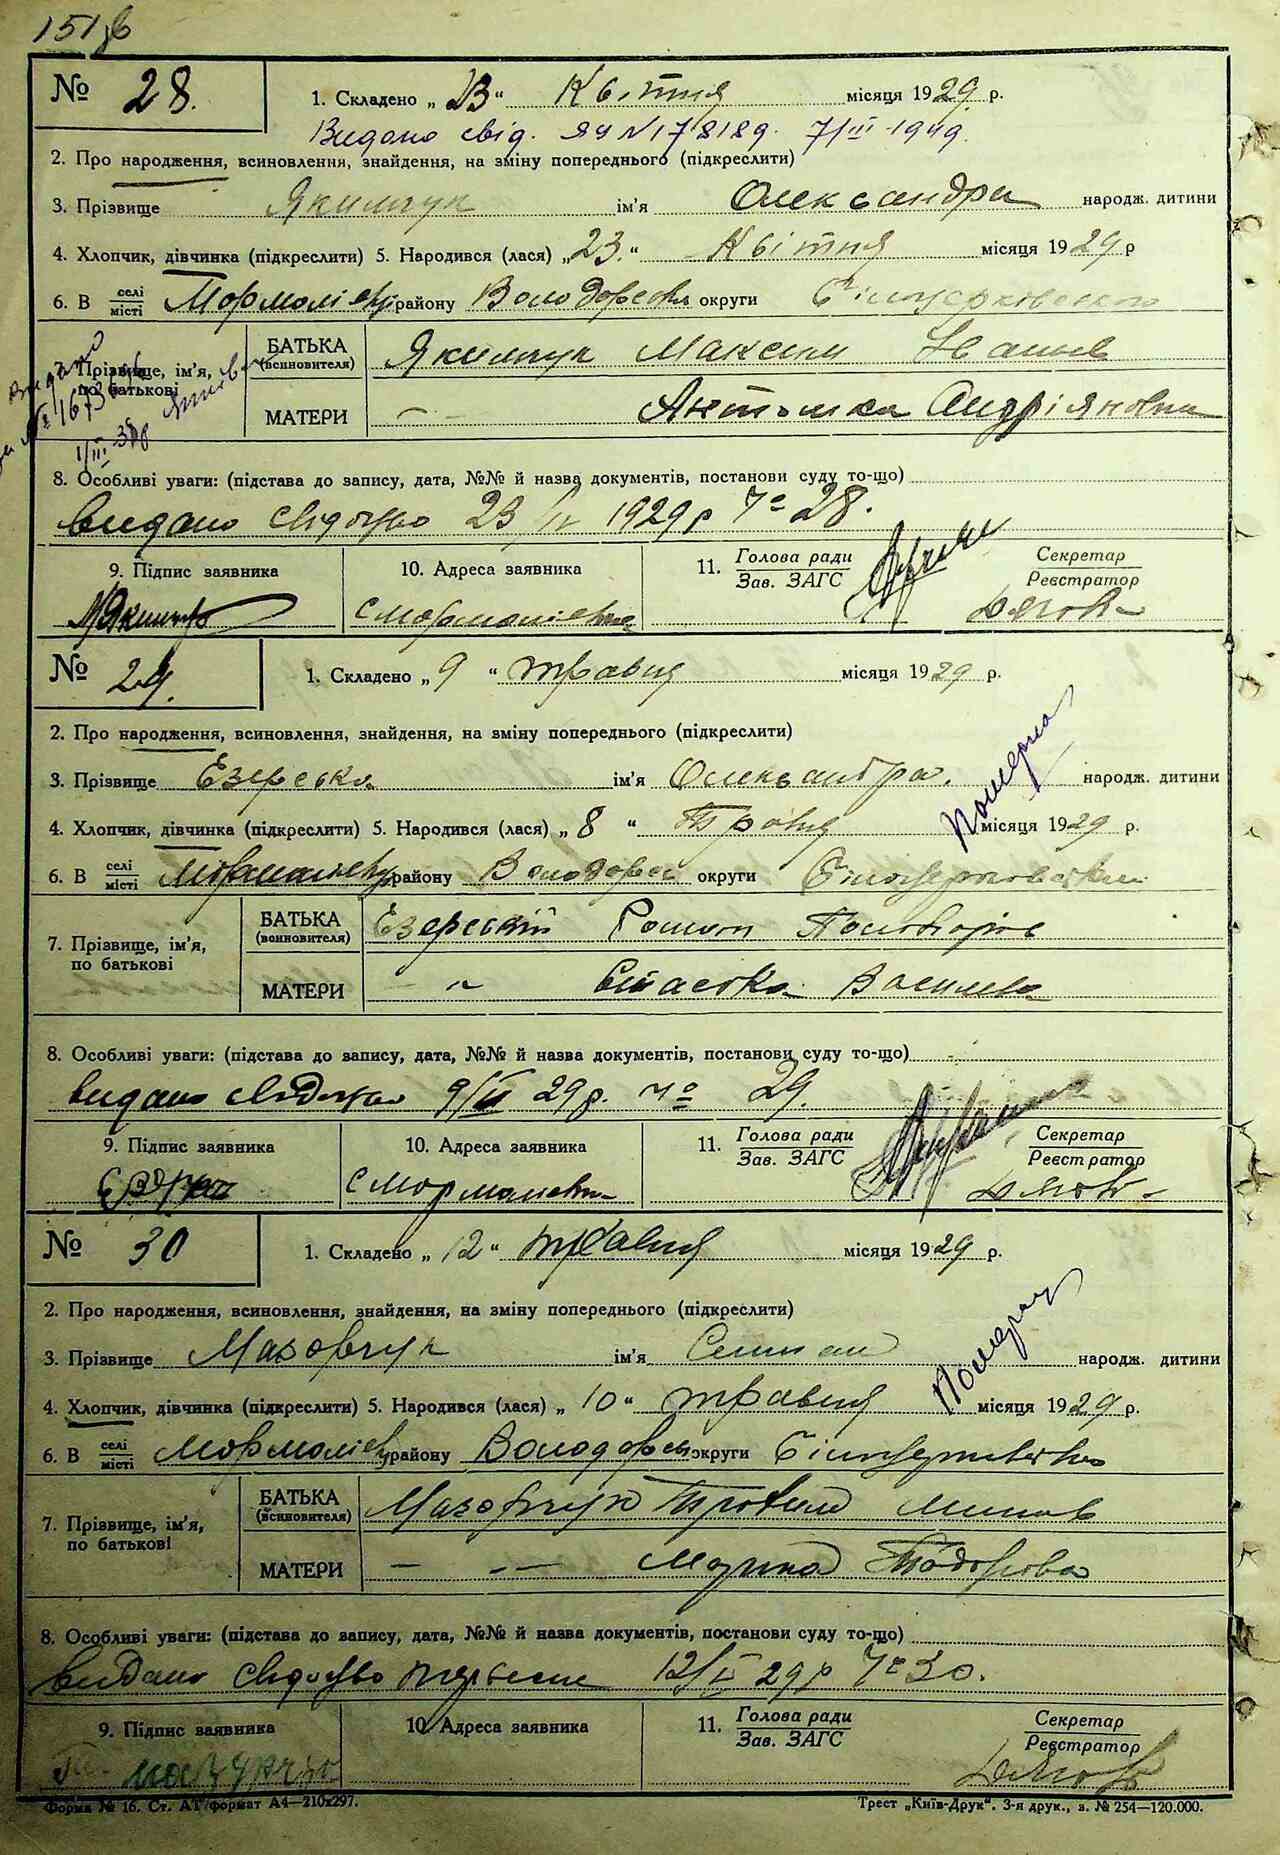 151зв
№ 28. 1. Складено „23“ Квітня місяця 1929. р.
Видано свід. ЯЧ N 178189. 7/III-1949.
2. Про народження, всиновлення, знайдення, на зміну попереднього (підкреслити)
3. Прізвище Якимчук ім'я Олександра народж. дитини
4. Хлопчик, дівчинка (підкреслити) 5. Народився (лася) „23.“ Квітня місяця 1929 р
6. В селі/місті Мормоліївці району Володарськ округи Білоцерківського
7. Прізвище, ім'я, по батькові
БАТЬКА (всиновителя) Якимчук Максим Іванов
МАТЕРИ — Антонка Андріяновна
1/III 38
8. Особливі уваги: (підстава до запису, дата, №№ й назва документів, постанови суду то-що)
видано свідоцтво 23/IV 1929 р № 28.
9. Підпис заявника 10. Адреса заявника 11. Голова ради / Зав. ЗАГС Секретар / Реєстратор
с Мормоліївка
№ 29. 1. Складено „9“ травня місяця 1929 р.
2. Про народження, всиновлення, знайдення, на зміну попереднього (підкреслити)
3. Прізвище Езерська ім'я Олександра. народж. дитини
Померла
4. Хлопчик, дівчинка (підкреслити) 5. Народився (лася) „8“ Травня місяця 1929 р.
6. В селі/місті Мормоліївці району Володарськ округи Білоцерківськ
7. Прізвище, ім'я, по батькові
БАТЬКА (всиновителя) Езерський Роман
МАТЕРИ — „ Стаська Василева
8. Особливі уваги: (підстава до запису, дата, №№ й назва документів, постанови суду то-що)
видано свідоцтво 9/V 29 р. № 29.
9. Підпис заявника 10. Адреса заявника 11. Голова ради / Зав. ЗАГС Секретар / Реєстратор
с Мормоліївка
№ 30 1. Складено „12“ травня місяця 1929 р.
2. Про народження, всиновлення, знайдення, на зміну попереднього (підкреслити)
3. Прізвище Мазовчук ім'я Семпан народж. дитини
Помер
4. Хлопчик, дівчинка (підкреслити) 5. Народився (лася) „10“ травня місяця 1929 р.
6. В селі/місті Мормоліївці району Володарськ округи Білоцерківська
7. Прізвище, ім'я, по батькові
БАТЬКА (всиновителя) Мазовчук Трофим
МАТЕРИ — — Марина Тодорова
8. Особливі уваги: (підстава до запису, дата, №№ й назва документів, постанови суду то-що)
видано свідоцтво 12/V 29 р № 30.
9. Підпис заявника 10. Адреса заявника 11. Голова ради / Зав. ЗАГС Секретар / Реєстратор
Форма № 16. Ст. АТ/формат А4—210х297. Трест „Київ-Друк“. 3-я друк., з. № 254—120.000.